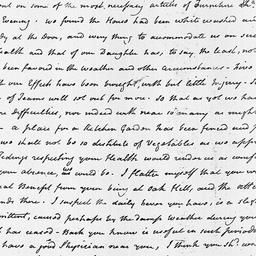 out on some of the most necessary articles of Furniture
Evening. we found the House had been white washed and
dy at the door, and every thing to accommodate us on such
Health and that of our Daughter has, to say the least, not
been favored in the weather and other circumstances.
t our Effects have been brought, with but little Injury.
of Teams will set out for more. So that as yet we have
are difficulties, nor indeed with near so many as might
a place for a Kitchen Garden has been fenced and
we shall not be so destitute of Vegetables as we
feelings respecting your Health would render us as comf
your absence, as would be. I flatter myself that you w
eal Benefit from your being at Oak Hill, and the
nds there. I suspect the daily fever you have, is a sligh
mittent, caused perhaps by the damp weather during your
h has ceased. Bark you know is useful in such periodi
have a good Physician near you, I think you shd.